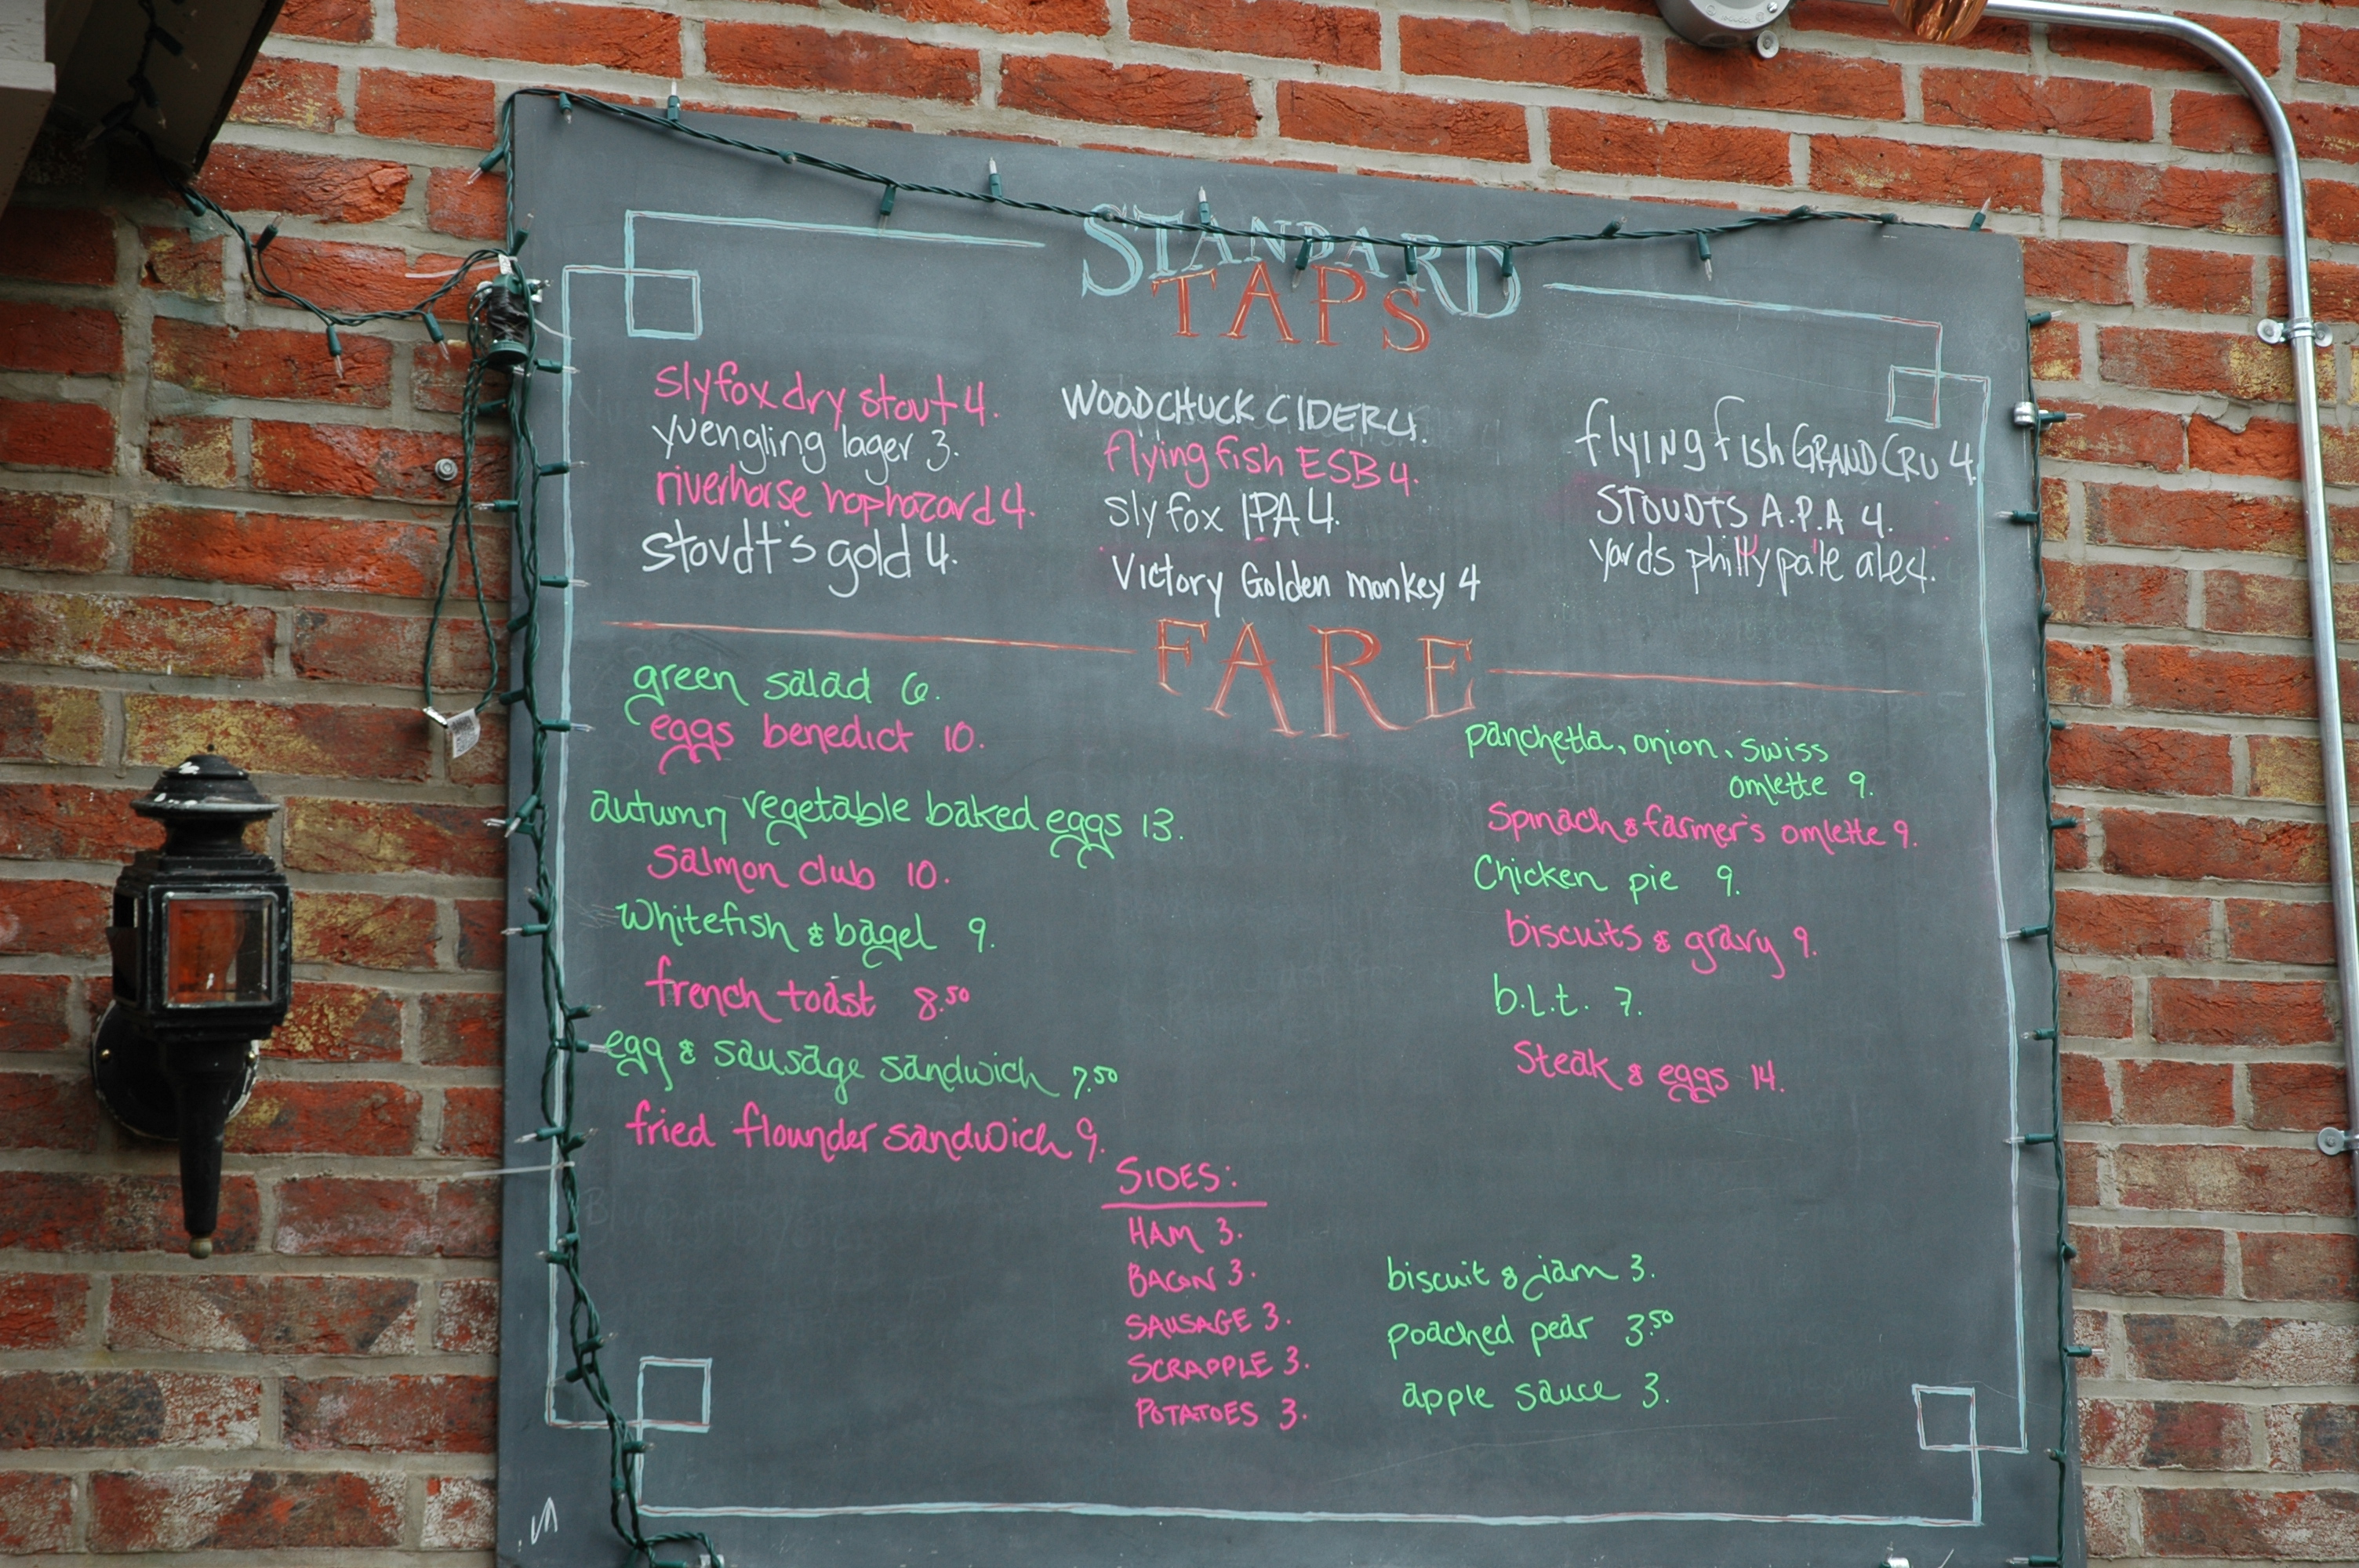 STANDARD
TAPS
slyfox dry stout 4.
yuengling lager 3.
riverhorse hophazard 4.
stoudt's gold 4.
WOODCHUCK CIDER 4.
flying fish ESB 4.
sly fox IPA 4.
Victory Golden monkey 4
flying fish GRAND CRU 4.
STOUDTS A.P.A 4.
yards philly pale ale 4.
FARE
green salad 6.
eggs benedict 10.
autumn vegetable baked eggs 13.
salmon club 10.
whitefish & bagel 9.
french toast 8.50
egg & sausage sandwich 7.50
fried flounder sandwich 9.
panchetta, onion, swiss
omlette 9.
spinach & farmer's omlette 9.
chicken pie 9.
biscuits & gravy 9.
b.l.t. 7.
steak & eggs 14.
SIDES:
HAM 3.
BACON 3.
SAUSAGE 3.
SCRAPPLE 3.
POTATOES 3.
biscuit & jam 3.
poached pear 3.50
apple sauce 3.